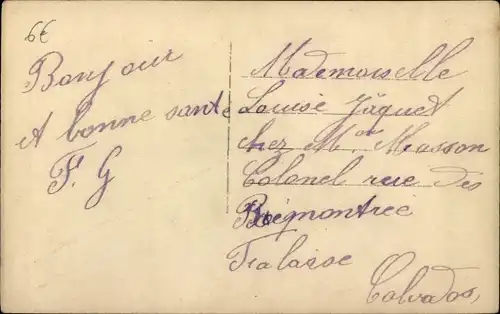 6€
Bonjour
et bonne santé
F. G
Mademoiselle
Louise Jäquet
chez M.or Masson
Colonel rue des
Falaise
Calvados,